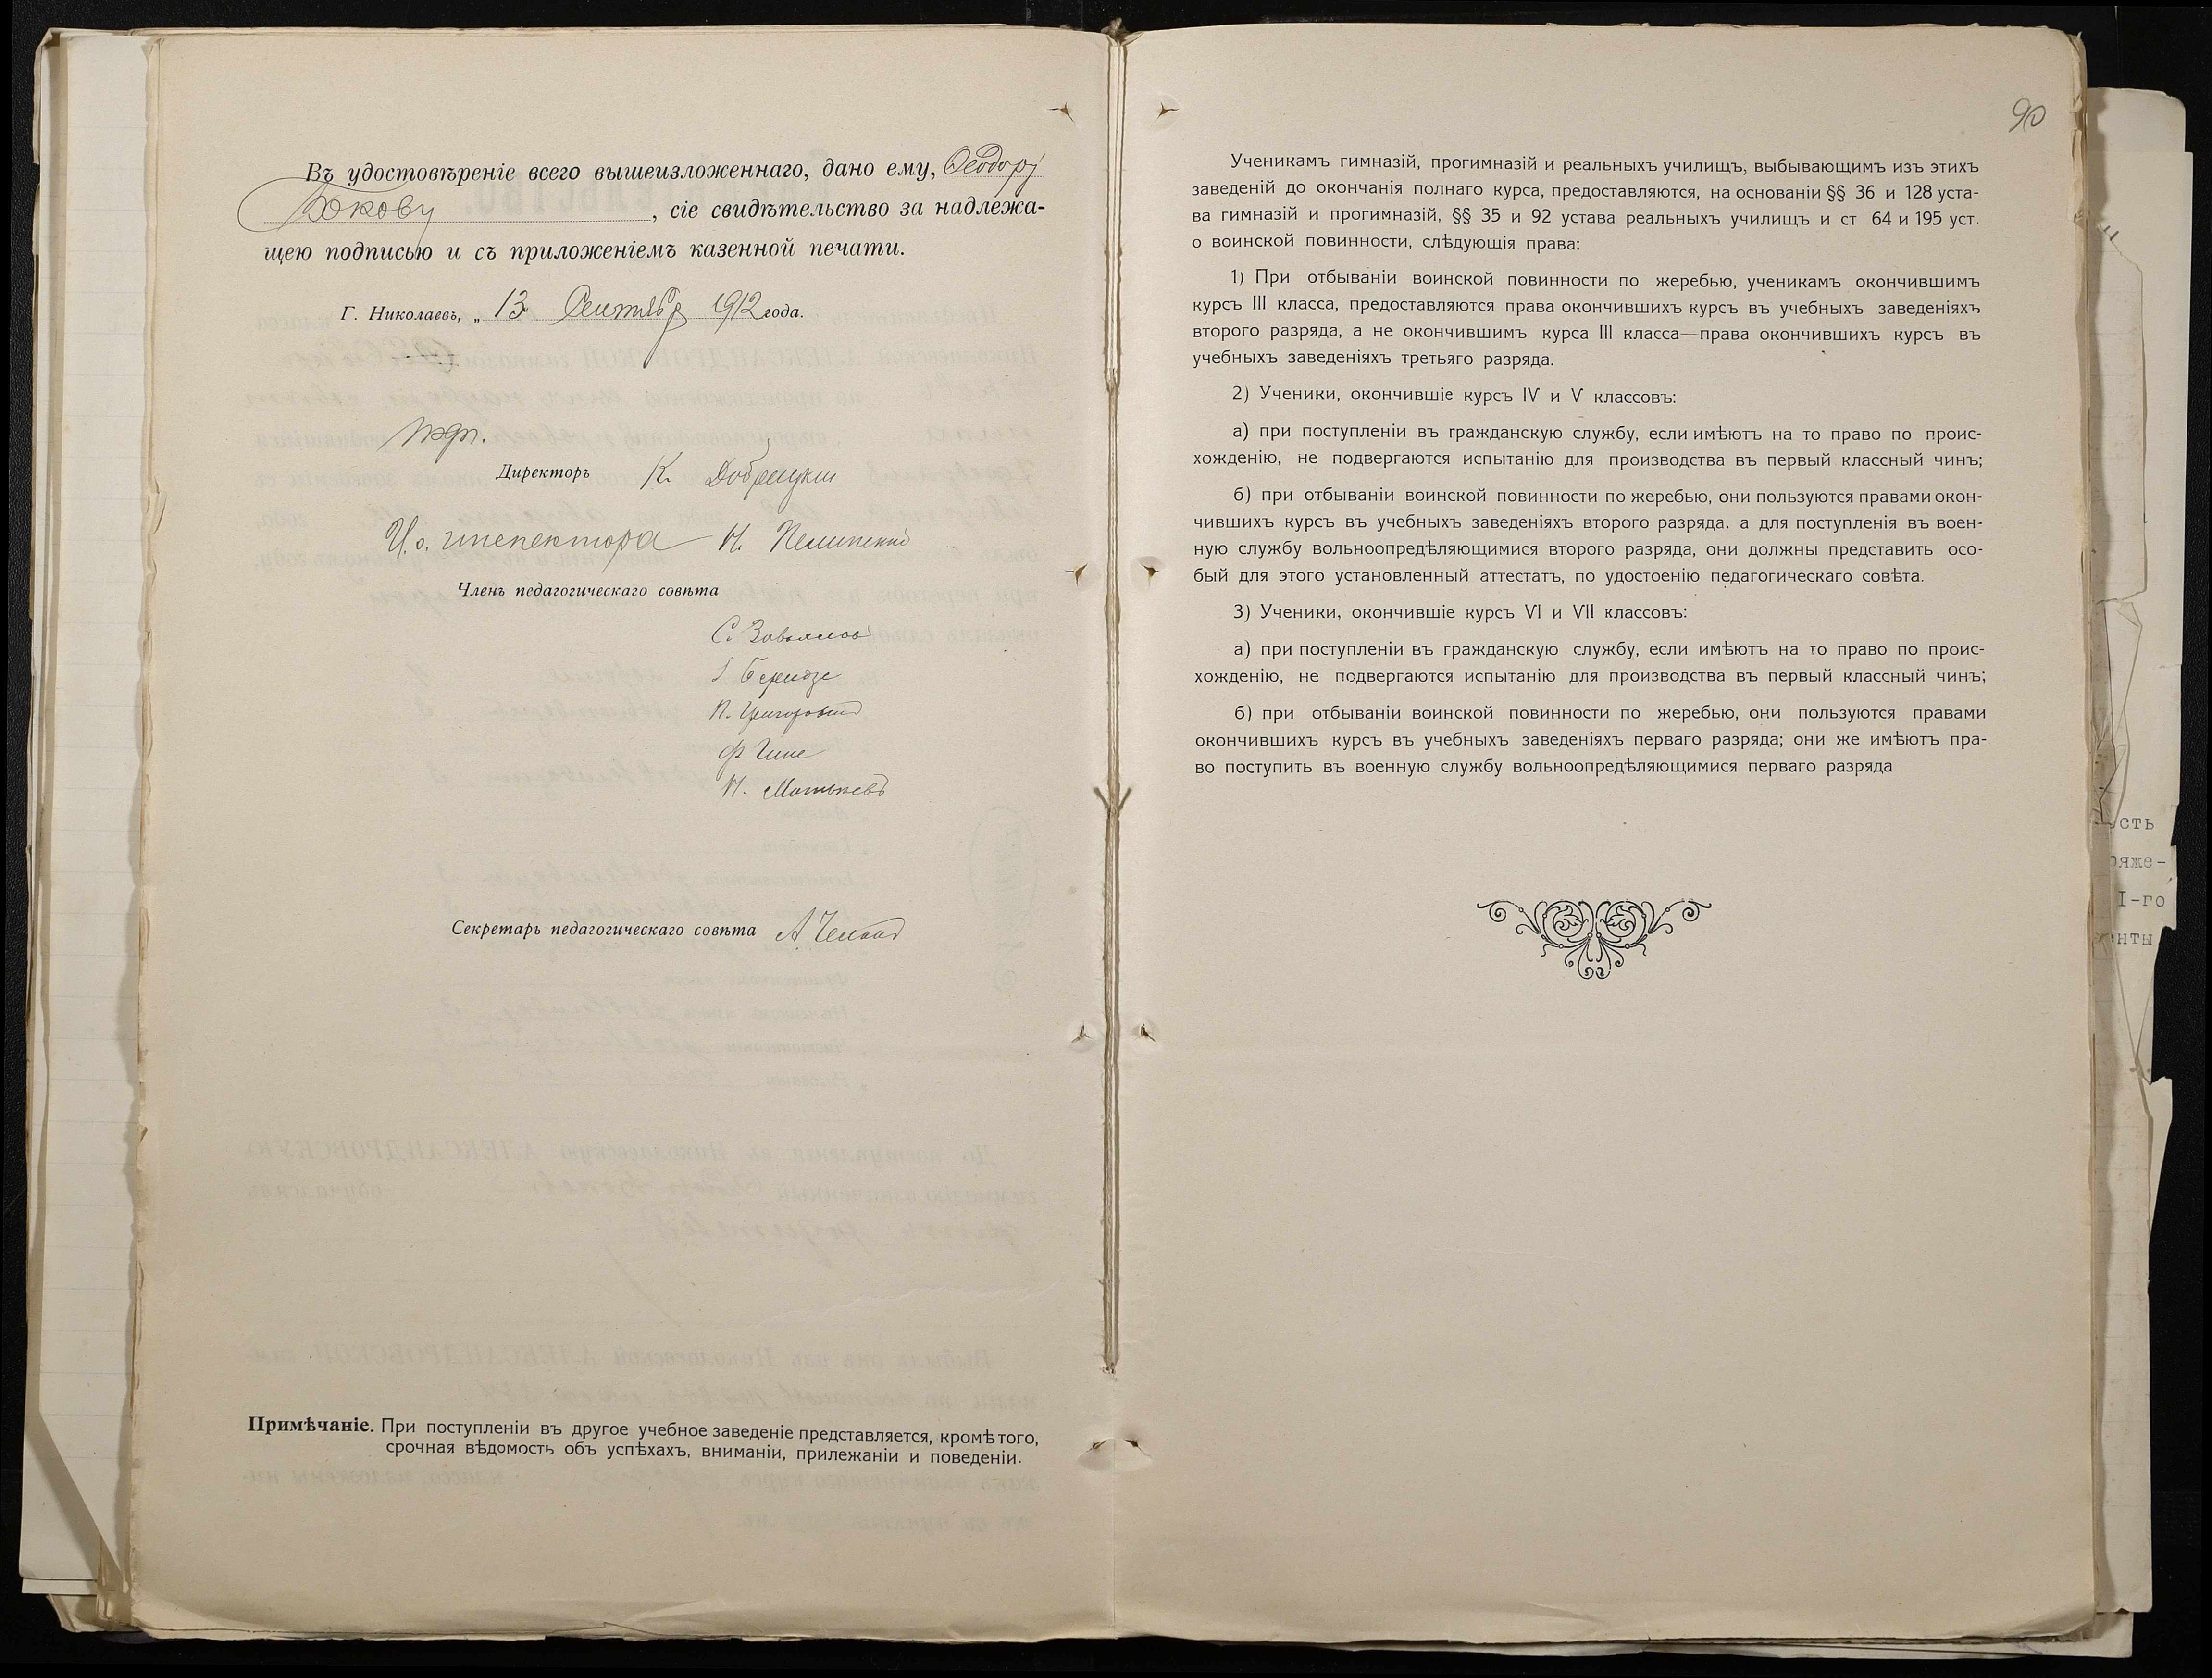 Въ удостовѣреніе всего вышеизложеннаго, дано ему, Ѳеодору
Бокову, сіе свидѣтельство за надлежа-
щею подписью и съ приложеніемъ казенной печати.
Г. Николаевъ, „ 13 Сентября 1912 года.
Директоръ К. Добрецкій
И. о. инспектора
Членъ педагогическаго совѣта
П. Григоровичъ
Секретарь педагогическаго совѣта
Примѣчаніе. При поступленіи въ другое учебное заведеніе представляется, кромѣ того,
срочная вѣдомость объ успѣхахъ, вниманіи, прилежаніи и поведеніи.
90
Ученикамъ гимназій, прогимназій и реальныхъ училищъ, выбывающимъ изъ этихъ
заведеній до окончанія полнаго курса, предоставляются, на основаніи §§ 36 и 128 уста-
ва гимназій и прогимназій, §§ 35 и 92 устава реальныхъ училищъ и ст 64 и 195 уст.
о воинской повинности, слѣдующія права:
1) При отбываніи воинской повинности по жеребью, ученикамъ окончившимъ
курсъ III класса, предоставляются права окончившихъ курсъ въ учебныхъ заведеніяхъ
второго разряда, а не окончившимъ курса III класса—права окончившихъ курсъ въ
учебныхъ заведеніяхъ третьяго разряда.
2) Ученики, окончившіе курсъ IV и V классовъ:
а) при поступленіи въ гражданскую службу, если имѣютъ на то право по проис-
хожденію, не подвергаются испытанію для производства въ первый классный чинъ;
б) при отбываніи воинской повинности по жеребью, они пользуются правами окон-
чившихъ курсъ въ учебныхъ заведеніяхъ второго разряда. а для поступленія въ воен-
ную службу вольноопредѣляющимися второго разряда, они должны представить осо-
бый для этого установленный аттестатъ, по удостоенію педагогическаго совѣта.
3) Ученики, окончившіе курсъ VI и VII классовъ:
а) при поступленіи въ гражданскую службу, если имѣютъ на то право по проис-
хожденію, не подвергаются испытанію для производства въ первый классный чинъ;
б) при отбываніи воинской повинности по жеребью, они пользуются правами
окончившихъ курсъ въ учебныхъ заведеніяхъ перваго разряда; они же имѣютъ пра-
во поступить въ военную службу вольноопредѣляющимися перваго разряда
сть
ряже-
I-го
нты